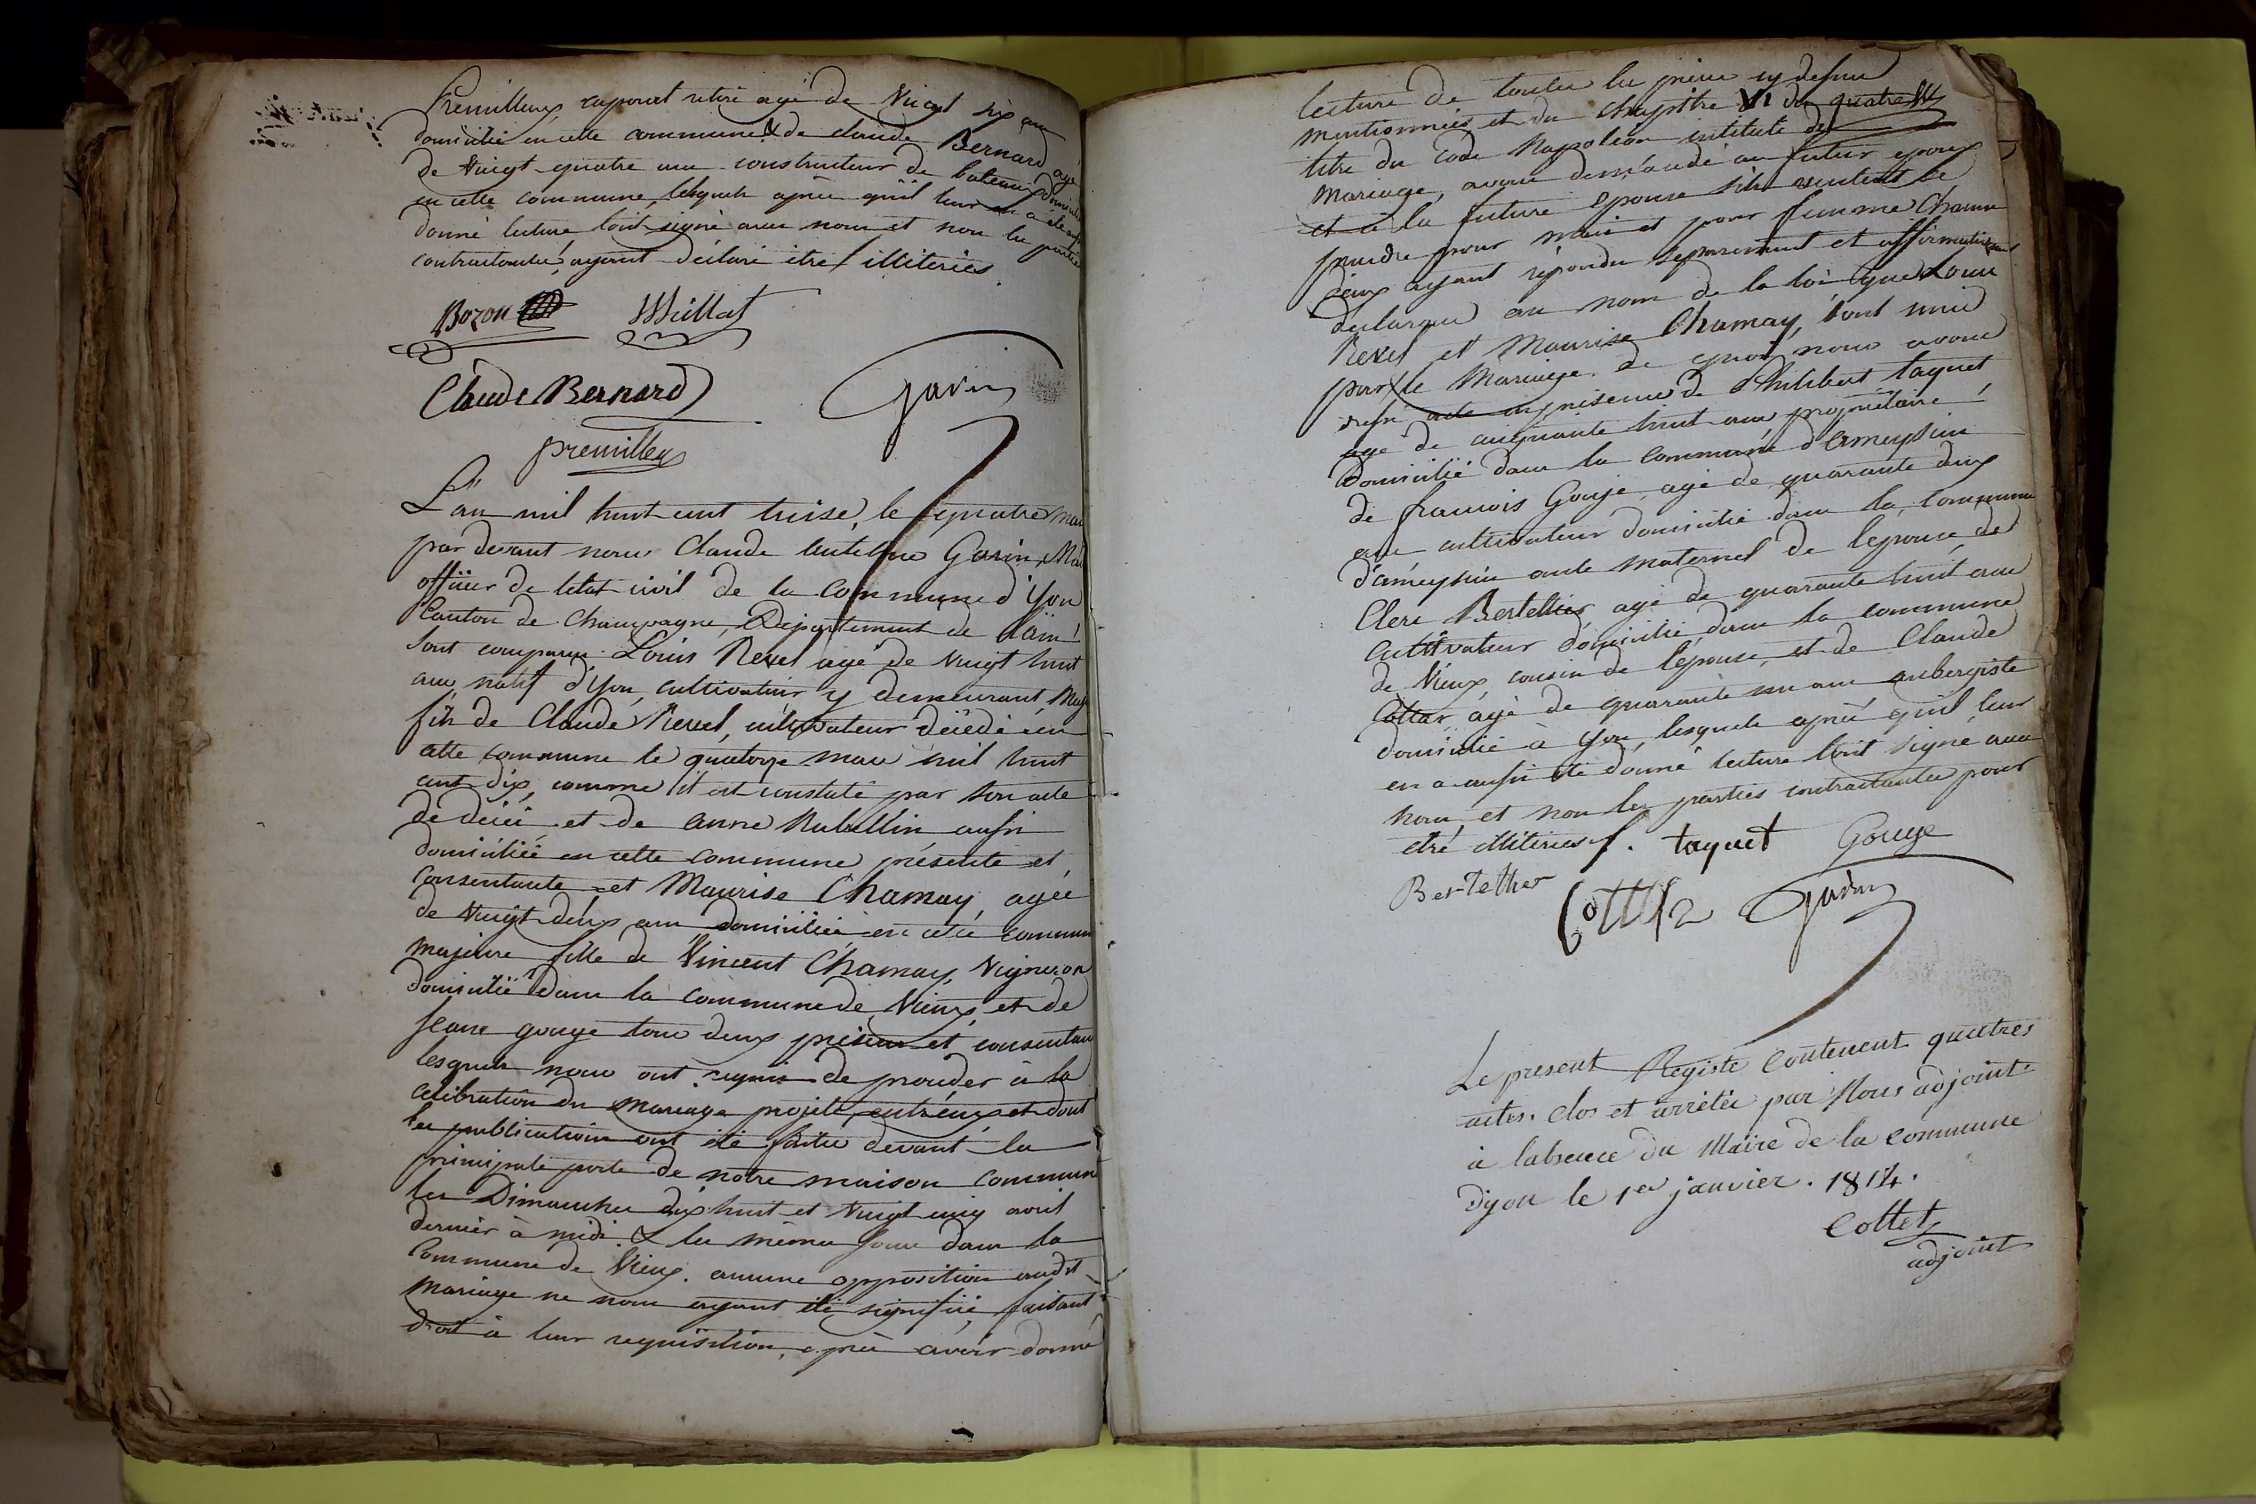 premilleux caporal retiré agé de Vingt six ans
domicilié en cette commune & de claude Bernard agé
de Vingt quatre ans constructeur de bateaux domicilié
en cette commune, lesquels après qu'il leur en a été aussi
donné lecture l'ont signé avec nous et non les parties
contractantes, ayant déclaré être illiterées
Bozon Millat
Claude Bernard Garin
premilleux
L'an mil huit cent treize, le quatre mai
par devant nous Claude Anthelme Garin, Mai
officier de letat civil de la Commune d'Yon
Canton de Champagne, Département de l'ain
sont comparus Louis Revel agé de vingt huit
ans, natif d'Yon, cultivateur y demeurant, maj
fils de Claude Revel, cultivateur décédé en
cette commune le quatorze mars mil huit
cent dix, comme il est constaté par son acte
de décès et de anne Rubellin aussi
domiciliée en cette commune présente et
consentante et Maurise Chamay, agée
de vingt deux ans domiciliée en cette commun
majeure fille de Vincent Chamay, Vigneron
domicilié dans la commune de Vieux, et de
Jeane gouge tous deux présens et consentans
lesquels nous ont requis de procéder à la
célébration du mariage projeté entr'eux et dont
les publications ont été faites devant la
principale porte de notre maison commune
les Dimanches dix huit et vingt cinq avril
dernier à midi & les mêmes jours dans la
Commune de Vieux. aucune opposition audit
mariage ne nous ayant été signifiée, faisant
droit à leur requisition, après avoir donné
lecture de toutes les pièces cy dessus
mentionnées et du chapitre VI du quatre
titre du Code Napoléon intitulé du
Mariage, avons demandé au futur epoux
et à la future epouse s'ils veulent se
prendre pour mari et pour femme, chacun
d'eux ayant répondu séparément et affirmativement
déclarons au nom de la loi que Louis
Revel et Maurise Chamay, sont unis
par le Mariage. de quoi nous avons
acte en présence de Philibert taquet
agé de cinquante huit ans, propriétaire
domicilié dans la commune d'ameysin
de francois Gouje agé de quarante deux
ans cultivateur domicilié dans la commune
d'ameysin oncle maternel de lepouse, de
Clerc Bertellier agé de quarante huit ans
Cultivateur domicilié dans la commune
de Vieux, cousin de l'épouse, et de Claude
Cottar agé de quarante un ans aubergiste
domicilié à Yon, lesquels après qu'il leur
en a aussi été donné lecture l'ont signé avec
nous, et non les parties contractantes pour
etre illiterées. taquet Gouge
Bertellier Cottet Garin
Le present Registe Contenent quatres
actes. clos et arretée par Nous adjoint
à labsence du Maire de la Commune
d'yon le 1er janvier. 1814.
Cottet
adjoint